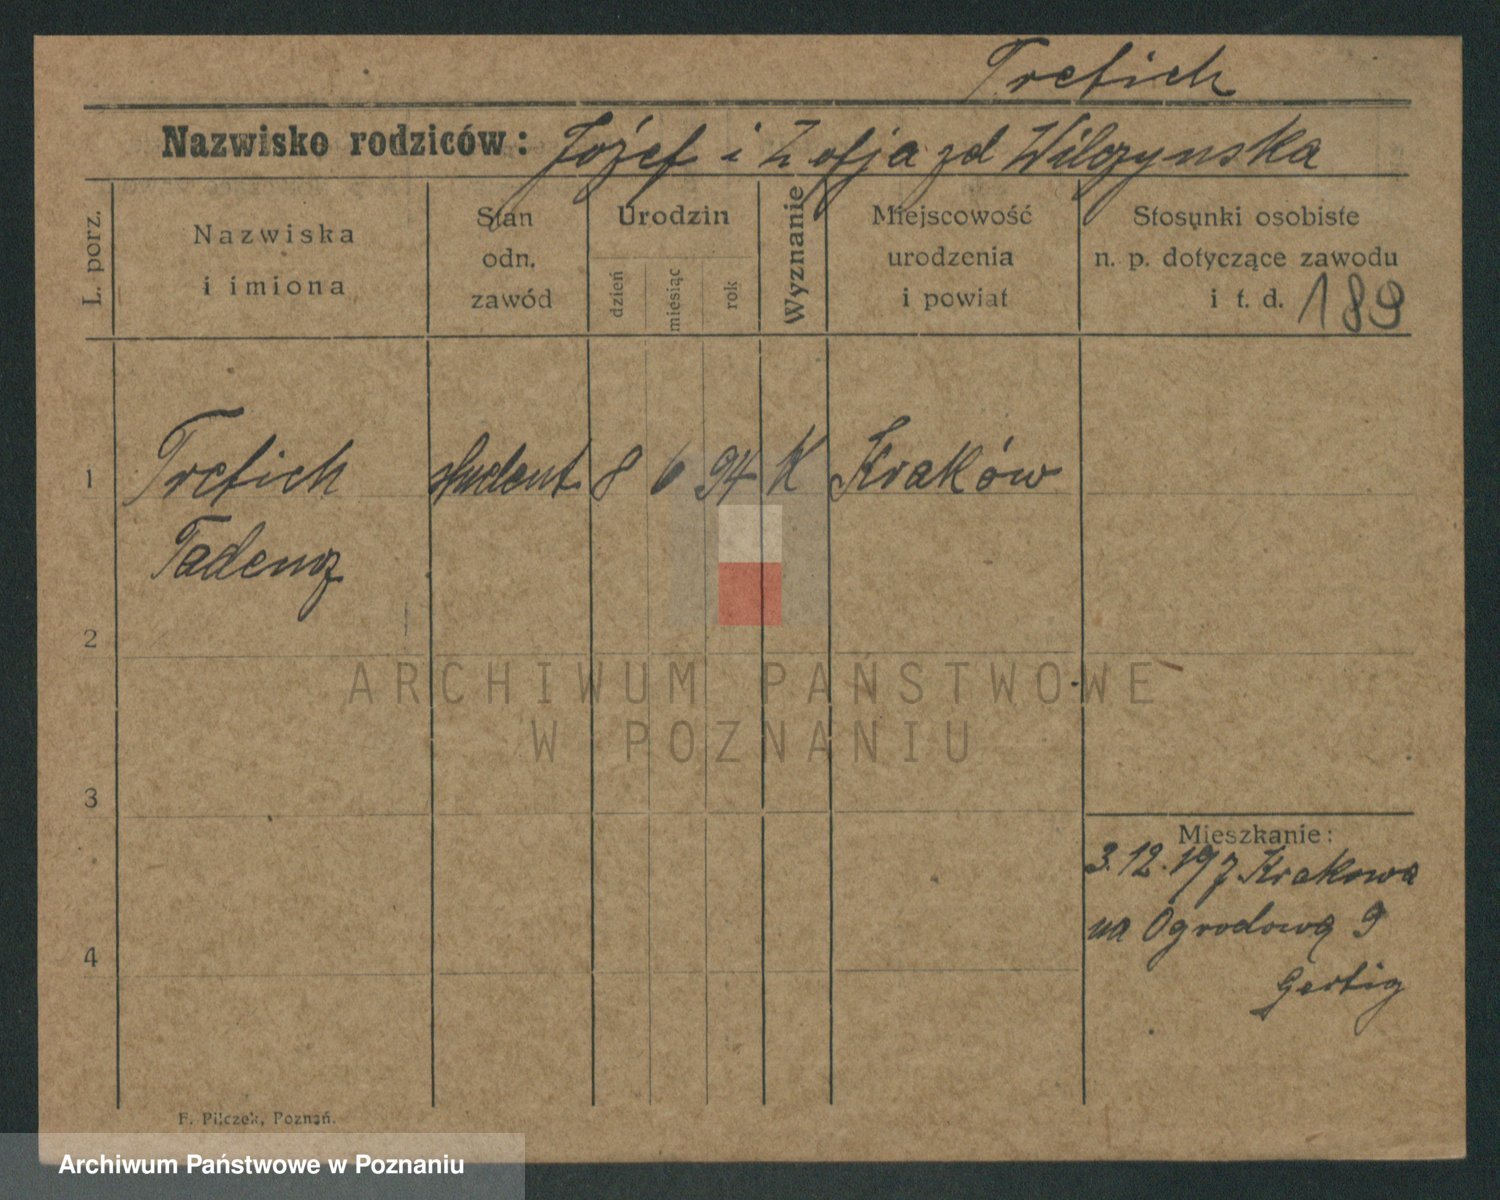 Trefich
Nazwisko rodziców: Józef i Zofja zd Wilczynska
L. porz.
Nazwiska
i imiona
Stan
odn.
zawód
Urodzin
dzień
miesiąc
rok
Wyznanie
Miejscowość
urodzenia
i powiat
Stosunki osobiste
n. p. dotyczące zawodu
i t. d. 189
1 Trefich student 8 6 94 K Kraków
Tadeusz
2
ARCHIWUM PAŃSTWOWE
W POZNANIU
3
Mieszkanie:
3.12.197 Krakowa
na Ogrodową 9
4
F. Pilczek, Poznań.
Archiwum Państwowe w Poznaniu